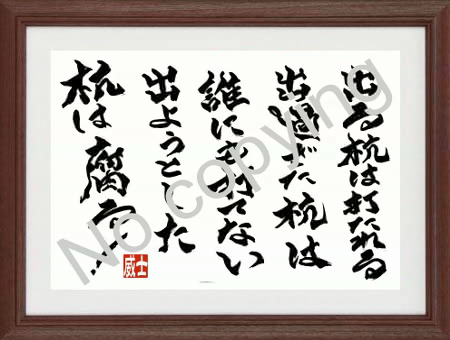 出る杭は打たれる
出過ぎた杭は
誰にも打てない
出ようとした
杭は腐る…
威士
No copying